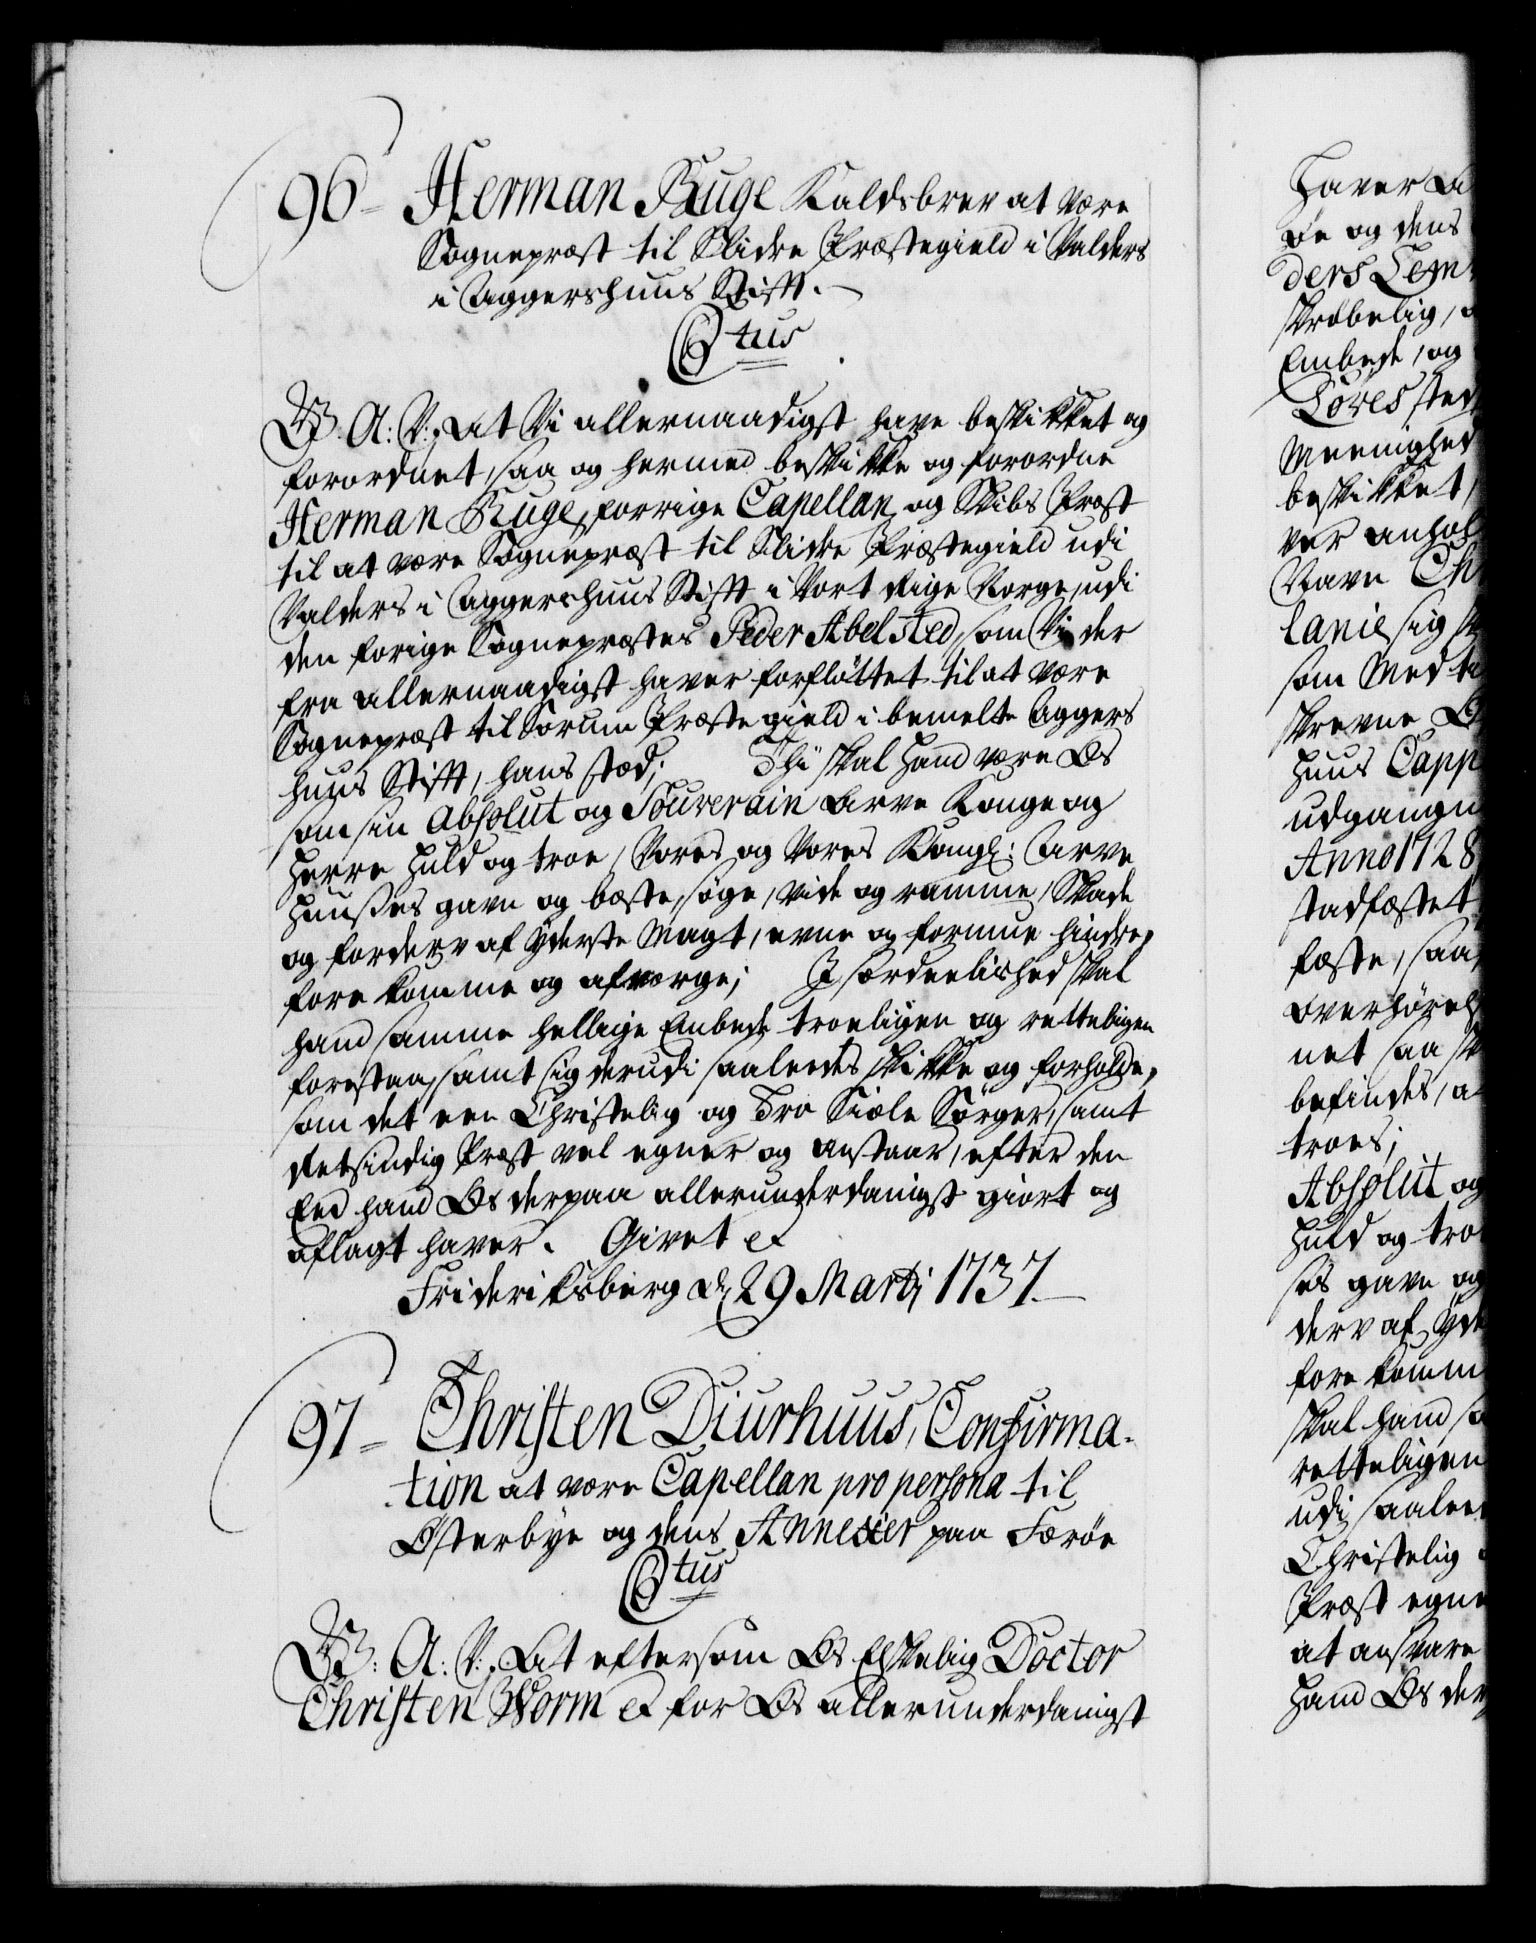 96= Herman Ruge Kaldsbrev at være
Sognepræst til Slidre Præstegield i Valders
i Aggershuus Stift.
C 6tus
W. A: V:, at Vi allernaadigst have beskikket og
forordnet, saa og hermed beskikke og forordne
Herman Ruge, forrige Capellan og Skibs Præst
til at være Sognepræst til Slidre Præstegield udi
Valders i Aggershuus Stift i Vort Rige Norge, udi
den forige Sognepræstes Peder Abelsted, som Vi der
fra allernaadigst haver forfløttet til at være
Sognepræst til Sørum Præstegield i bemelte Aggers
huus Stift, hans stæd; Thi skal hand være Os
som sin Absolut og Souverain Arve Konge og
Herre huld og troe, Vores og Vores Kongl: Arve
Huuses gavn og bæste, søge, vide og ramme, Skade
og forderv af yderste Magt, evne og formue hindre,
fore komme og afværge; I særdeelished skal
hand samme hellige Embede troeligen og retteligen
forestaa, samt sig derudi saaledes skikke og forholde,
som det een Christelig og Tro Siæle Sørger, samt
Retsindig Præst vel egner og anstaar, efter den
Eed hand Os derpaa allerunderdanigst giort og
aflagt haver. Givet &
Frideriksberg d. 29 Martj 1737
97= Christen Diurhuus, Confirma-
tion at være Capellan pro persona til
Østerbye og dens Annexer paa Færøe
C 6tus
W: A: V:, at eftersom Os Elskelig Doctor
Christen Worm & for Os allerunderdanigst
haver
øe og dens
ders Lem
skrøbelig,
Embede, og
Løves sted
Meenighed
beskikket,
ver anhol
Navn Ch
lanie sig
som Med
skrevne
huus Capp
udgangn
Anno 1728
stadfæstet
fæste, saa
overhørel
net saa
befindes, a
troes;
Absolut og
huld og tro
ses gavn og
derv af yde
fore komm
skal hand sa
retteligen
udi saalee
Christelig
Præst egne
at ansvare
hand Os der